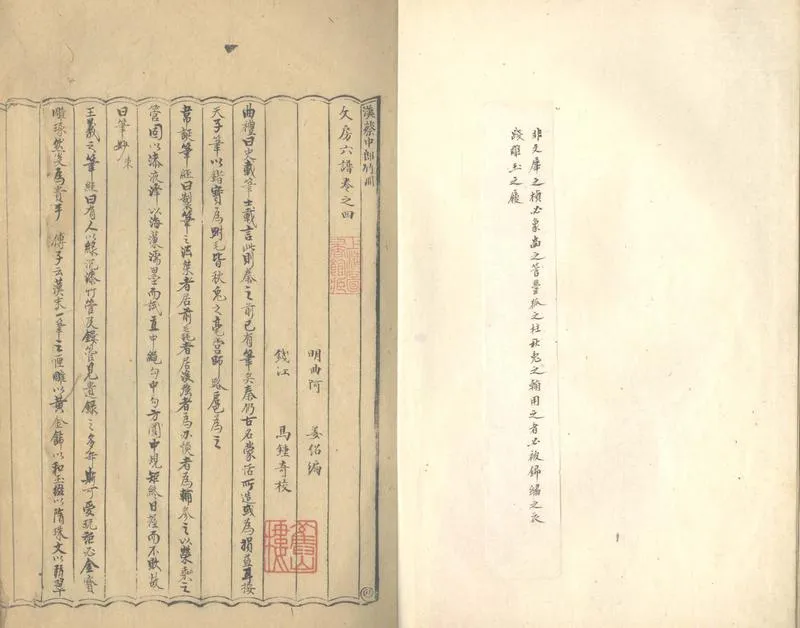 非文犀之楨必象齒之管豐狐之柱秋兔之翰用之者必被錦繡之衣
踐雕玉之履
漢蔡中郎竹冊
文房六譜卷之四
上海圖書館藏
明曲阿 姜紹編
錢江 馬鍾奇校
舊山樓
曲禮曰史載筆士載言此則秦之前已有筆矣秦仍古名蒙恬所造或為損益耳按
天子筆以錯寶為跗毛皆秋兔之毫官師路扈為之
韋誕筆經曰製筆之法桀者居前毳者居後強者為刃愞者為輔參之以檾束之
管固以漆液澤以海藻濡墨而試直中繩勾中勾方圓中規矩終日握而不敗故
曰筆妙
王羲之筆經曰有人以綠沉漆竹管及鏤管見遺錄之多年斯可愛玩詎必金寶
雕琢然後為貴乎 傅子云漢末一筆之匣雕以黃金飾以和玉綴以隋珠文以翡翠